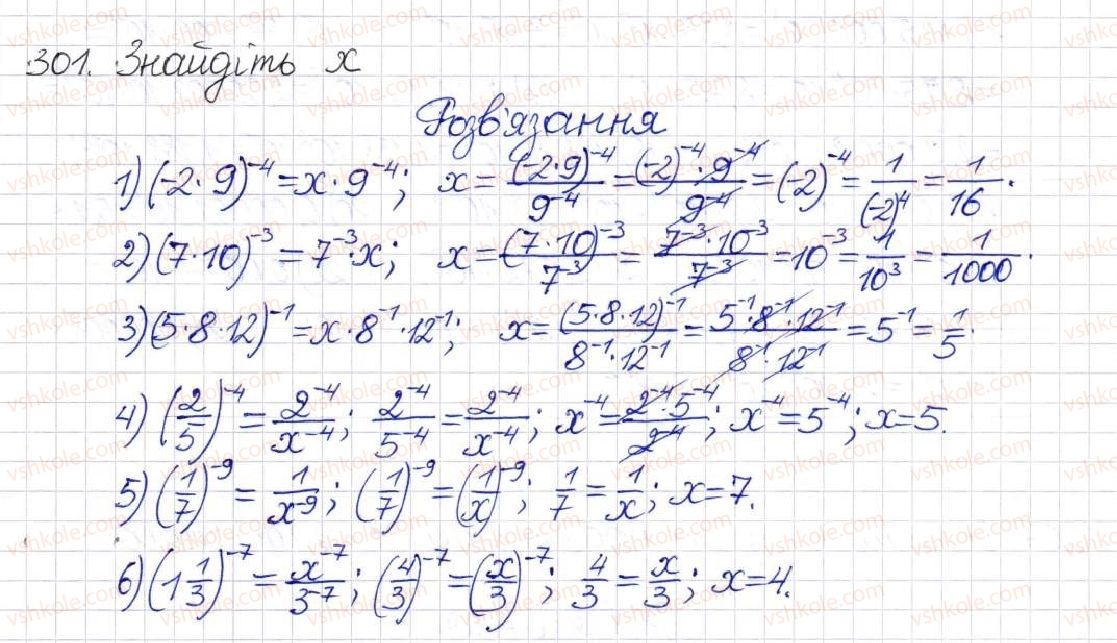 301. Знайдіть x
Розв'язання
1) (-2·9)^{-4} = x·9^{-4}; x = \frac{(-2·9)^{-4}}{9^{-4}} = \frac{(-2)^{-4}·9^{-4}}{9^{-4}} = (-2)^{-4} = \frac{1}{(-2)^4} = \frac{1}{16}.
2) (7·10)^{-3} = 7^{-3}·x; x = \frac{(7·10)^{-3}}{7^{-3}} = \frac{7^{-3}·10^{-3}}{7^{-3}} = 10^{-3} = \frac{1}{10^3} = \frac{1}{1000}.
3) (5·8·12)^{-1} = x·8^{-1}·12^{-1}; x = \frac{(5·8·12)^{-1}}{8^{-1}·12^{-1}} = \frac{5^{-1}·8^{-1}·12^{-1}}{8^{-1}·12^{-1}} = 5^{-1} = \frac{1}{5}.
4) (\frac{2}{5})^{-4} = \frac{2^{-4}}{x^{-4}}; \frac{2^{-4}}{5^{-4}} = \frac{2^{-4}}{x^{-4}}; x^{-4} = \frac{2^{-4}·5^{-4}}{2^{-4}}; x^{-4} = 5^{-4}; x = 5.
5) (\frac{1}{7})^{-9} = \frac{1}{x^{-9}}; (\frac{1}{7})^{-9} = (\frac{1}{x})^{-9}; \frac{1}{7} = \frac{1}{x}; x = 7.
6) (1\frac{1}{3})^{-7} = \frac{x^{-7}}{3^{-7}}; (\frac{4}{3})^{-7} = (\frac{x}{3})^{-7}; \frac{4}{3} = \frac{x}{3}; x = 4.
vshkole.com